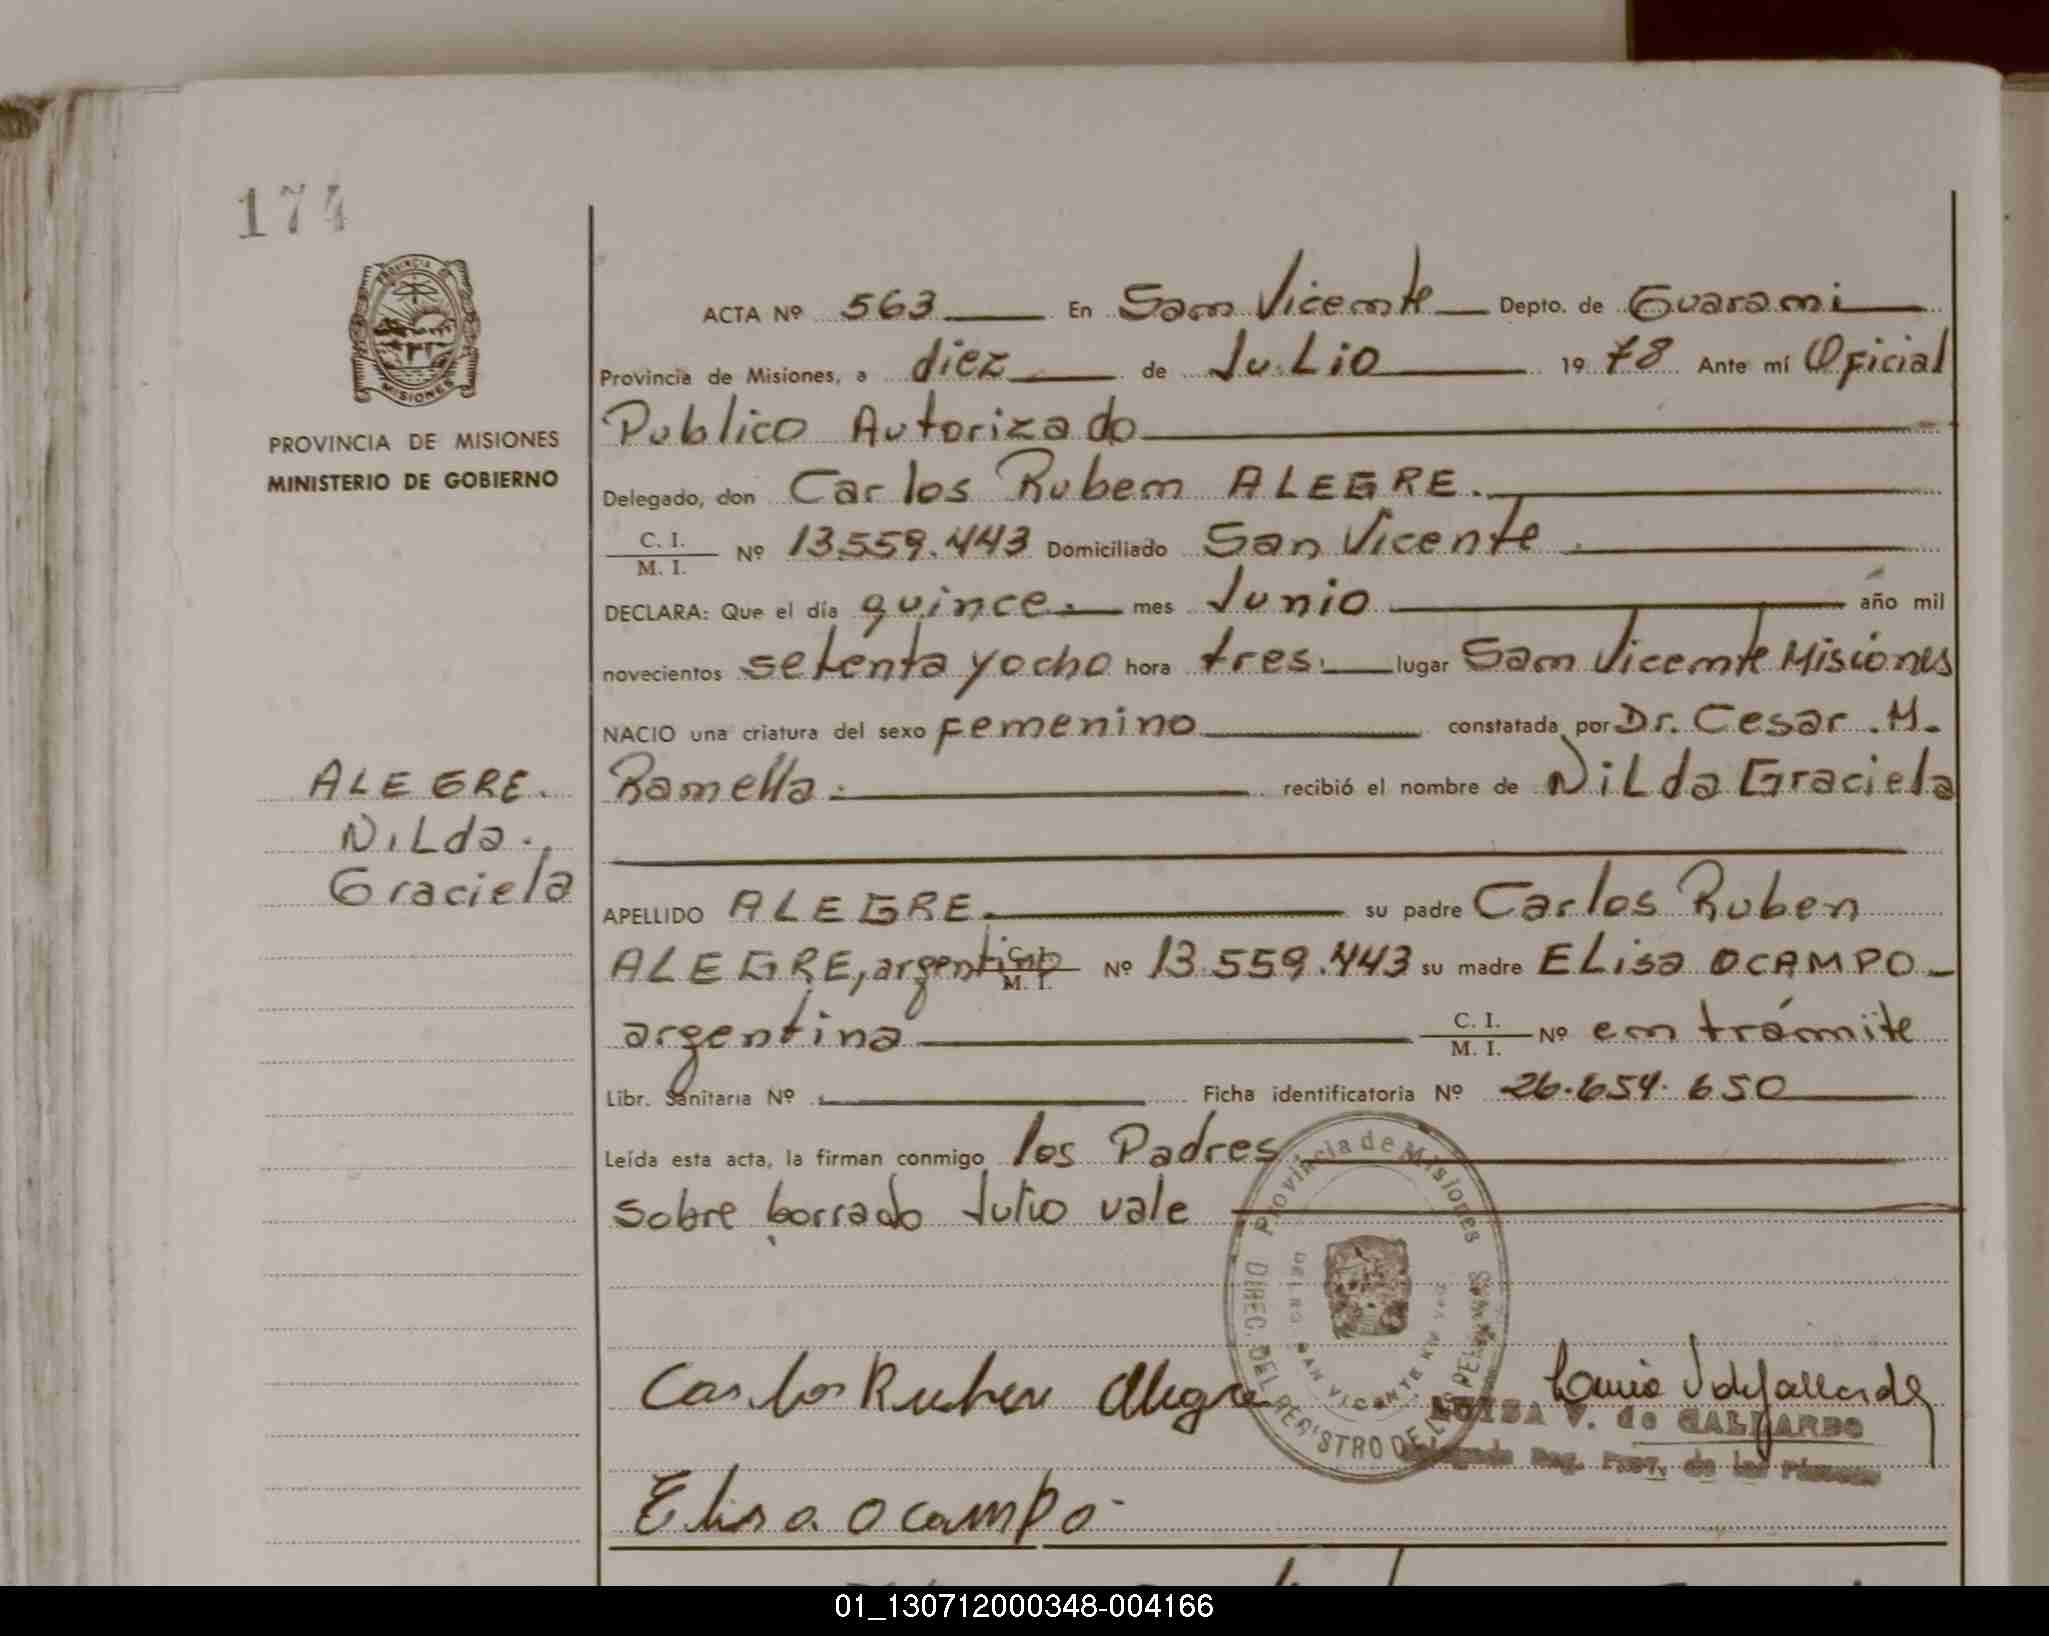 174
PROVINCIA DE
MISIONES
PROVINCIA DE MISIONES
MINISTERIO DE GOBIERNO
ALEGRE.
Nilda.
Graciela
ACTA Nº 563 En San Vicente Depto. de Guarani
Provincia de Misiones, a diez de Julio 1978 Ante mí Oficial
Publico Autorizado
Delegado, don Carlos Ruben ALEGRE.
C. I.
M. I. Nº 13.559.443 Domiciliado San Vicente
DECLARA: Que el día quince. mes Junio año mil
novecientos setenta y ocho hora tres. lugar San Vicente Misiones
NACIO una criatura del sexo Femenino constatada por Dr. Cesar M.
Ramella. recibió el nombre de Nilda Graciela
APELLIDO ALEGRE. su padre Carlos Ruben
ALEGRE, argentino C. I. M. I. Nº 13.559.443 su madre Elisa OCAMPO
argentina C. I. M. I. Nº en trámite
Libr. Sanitaria Nº Ficha identificatoria Nº 26.654.650
Leída esta acta, la firman conmigo los Padres
sobre borrado Julio vale
Provincia de Misiones
DIREC. DEL REGISTRO DE LAS
SAN VICENTE
Carlos Ruben Alegre
LUISA V. de GALLARDO
Delegada Reg. Prov. de las Personas
Elisa Ocampo
01_130712000348-004166